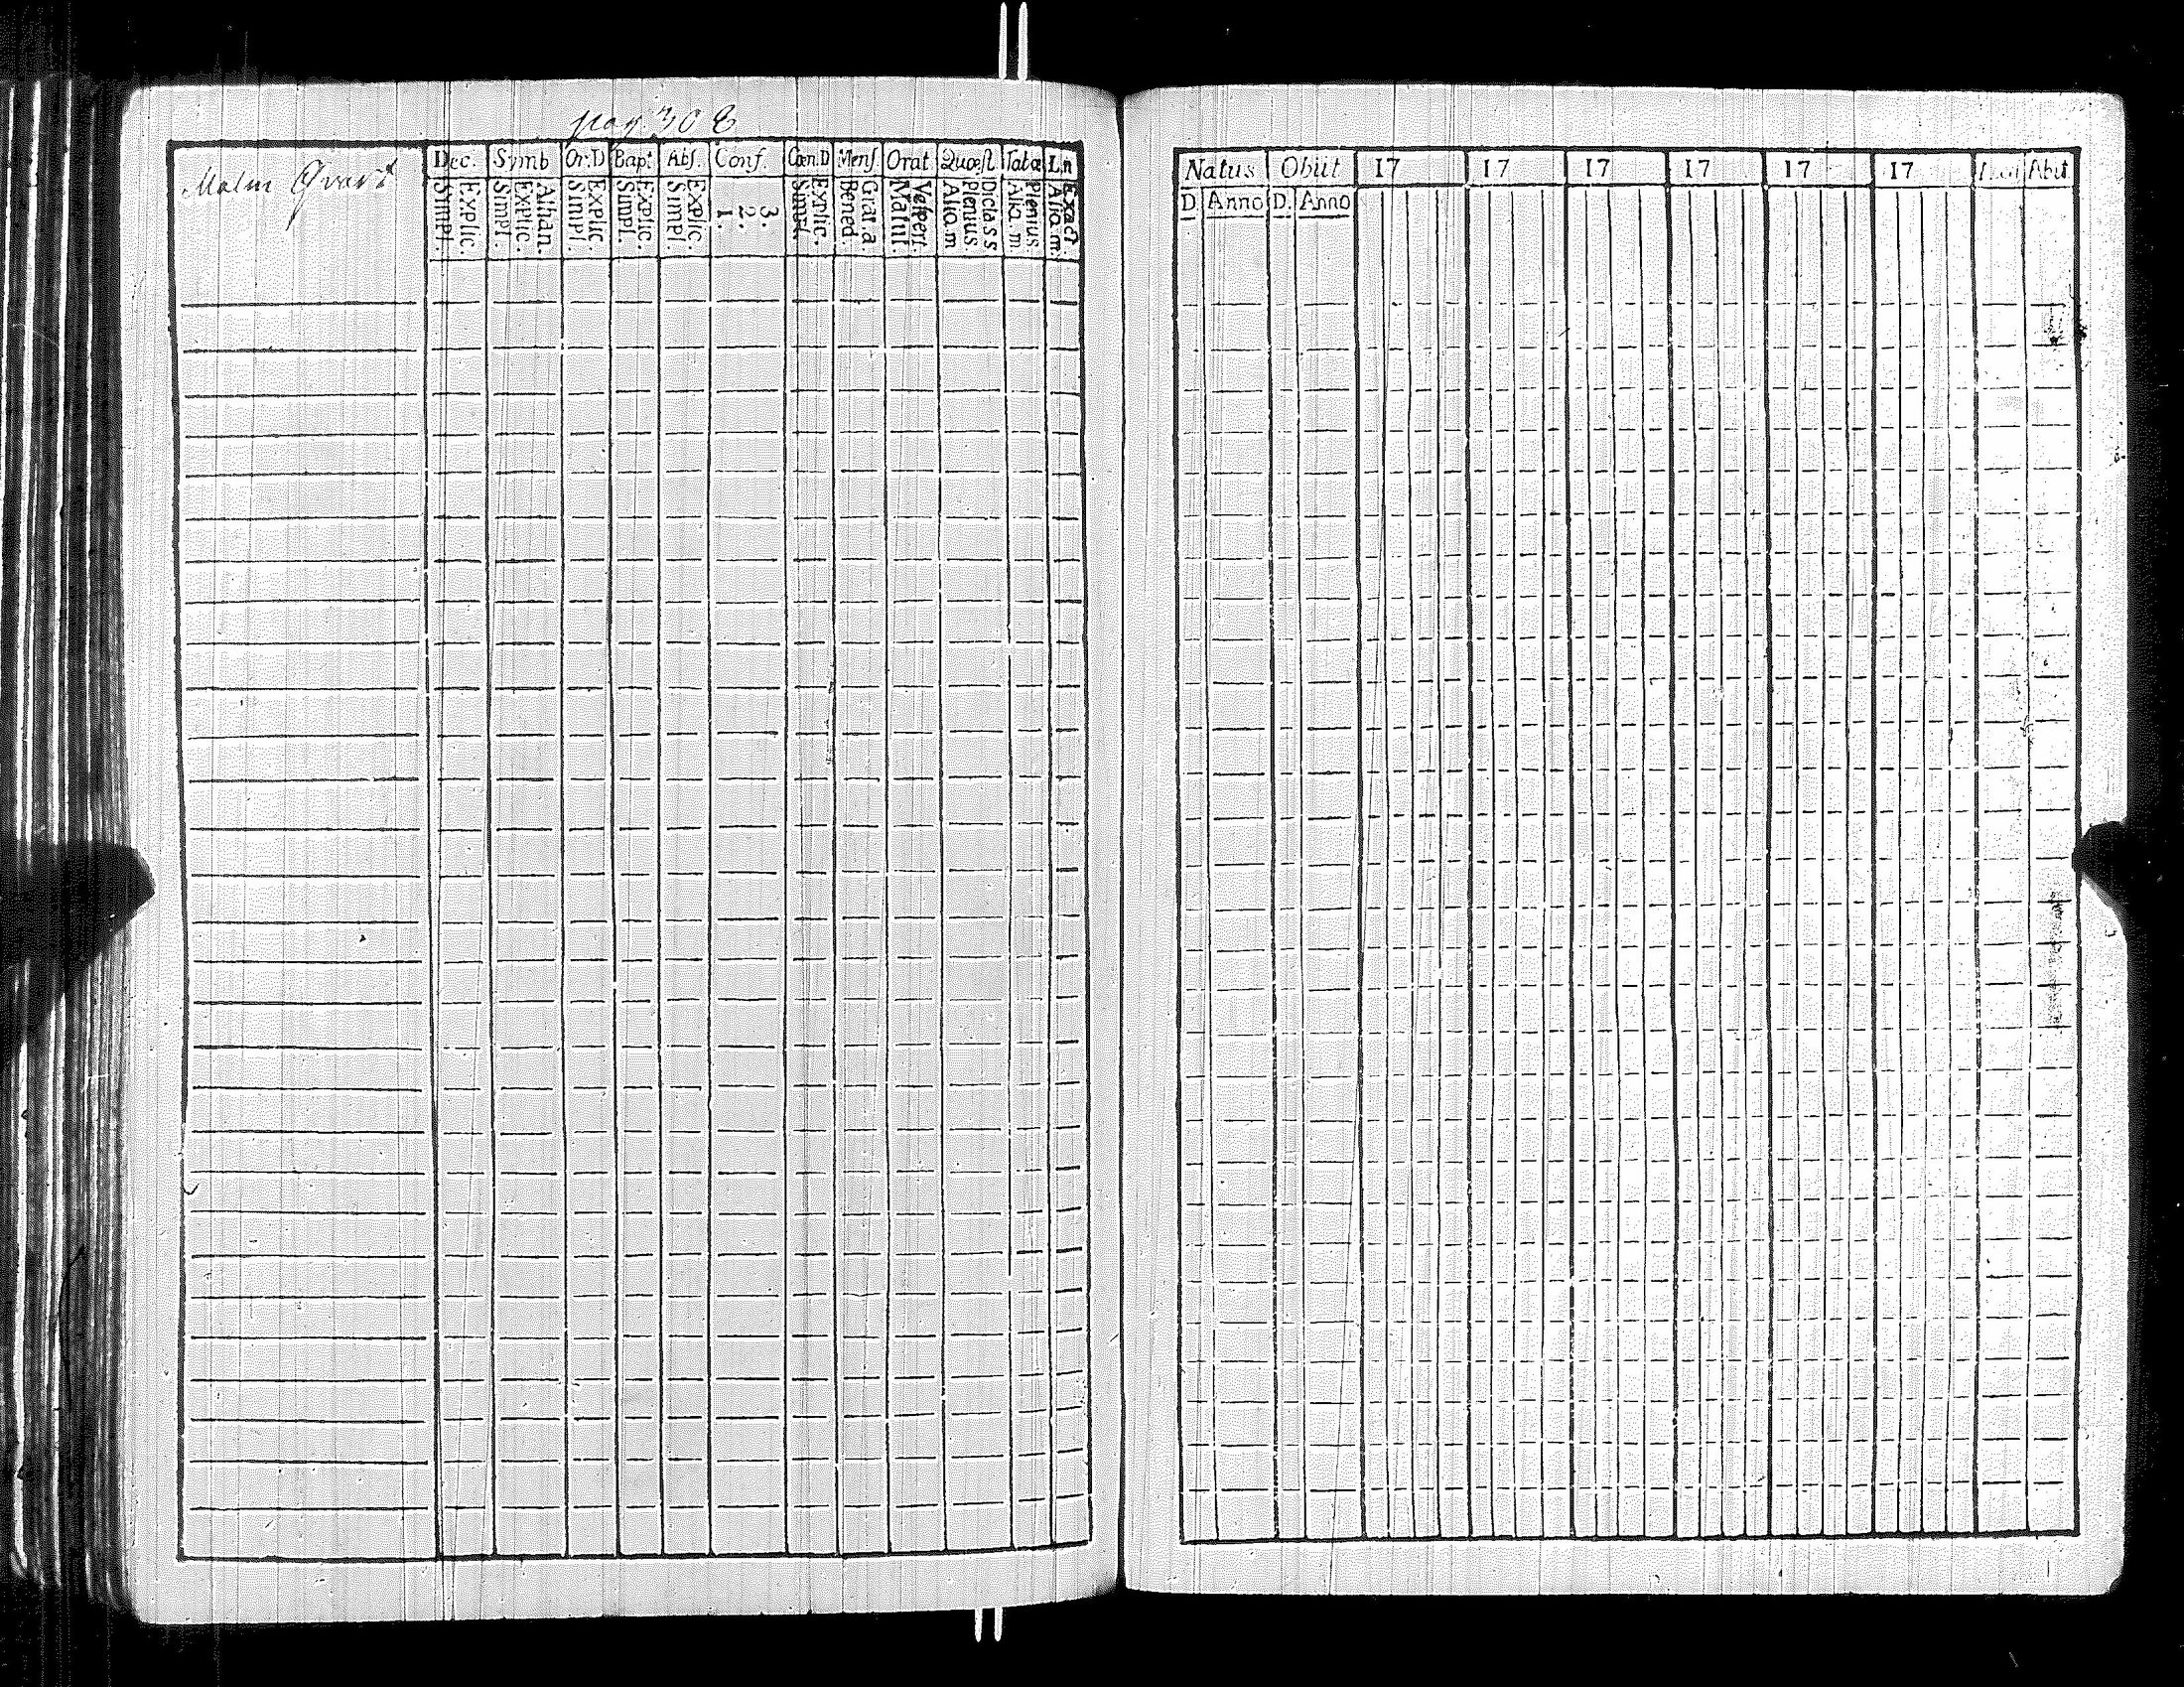 pag 308
Malm Qvart
Dec. Symb Or:D Bapt Abſ. Conf. Cœn:D Menſ. Orat Quœſt Tabœ L.n
Simpl. Explic. Simpl. Explic. Athan. Simpl. Explic. Simpl. Explic. Simpl. Explic. 1. 2. 3. Simpl. Explic. Bened. Grat.a Matut. Veſpert. Alio.m Plenius Dicta ss Alio.m. Plenius Alio.m. Exact.
Natus Obiit 17 17 17 17 17 17 Abiit
D. Anno D. Anno